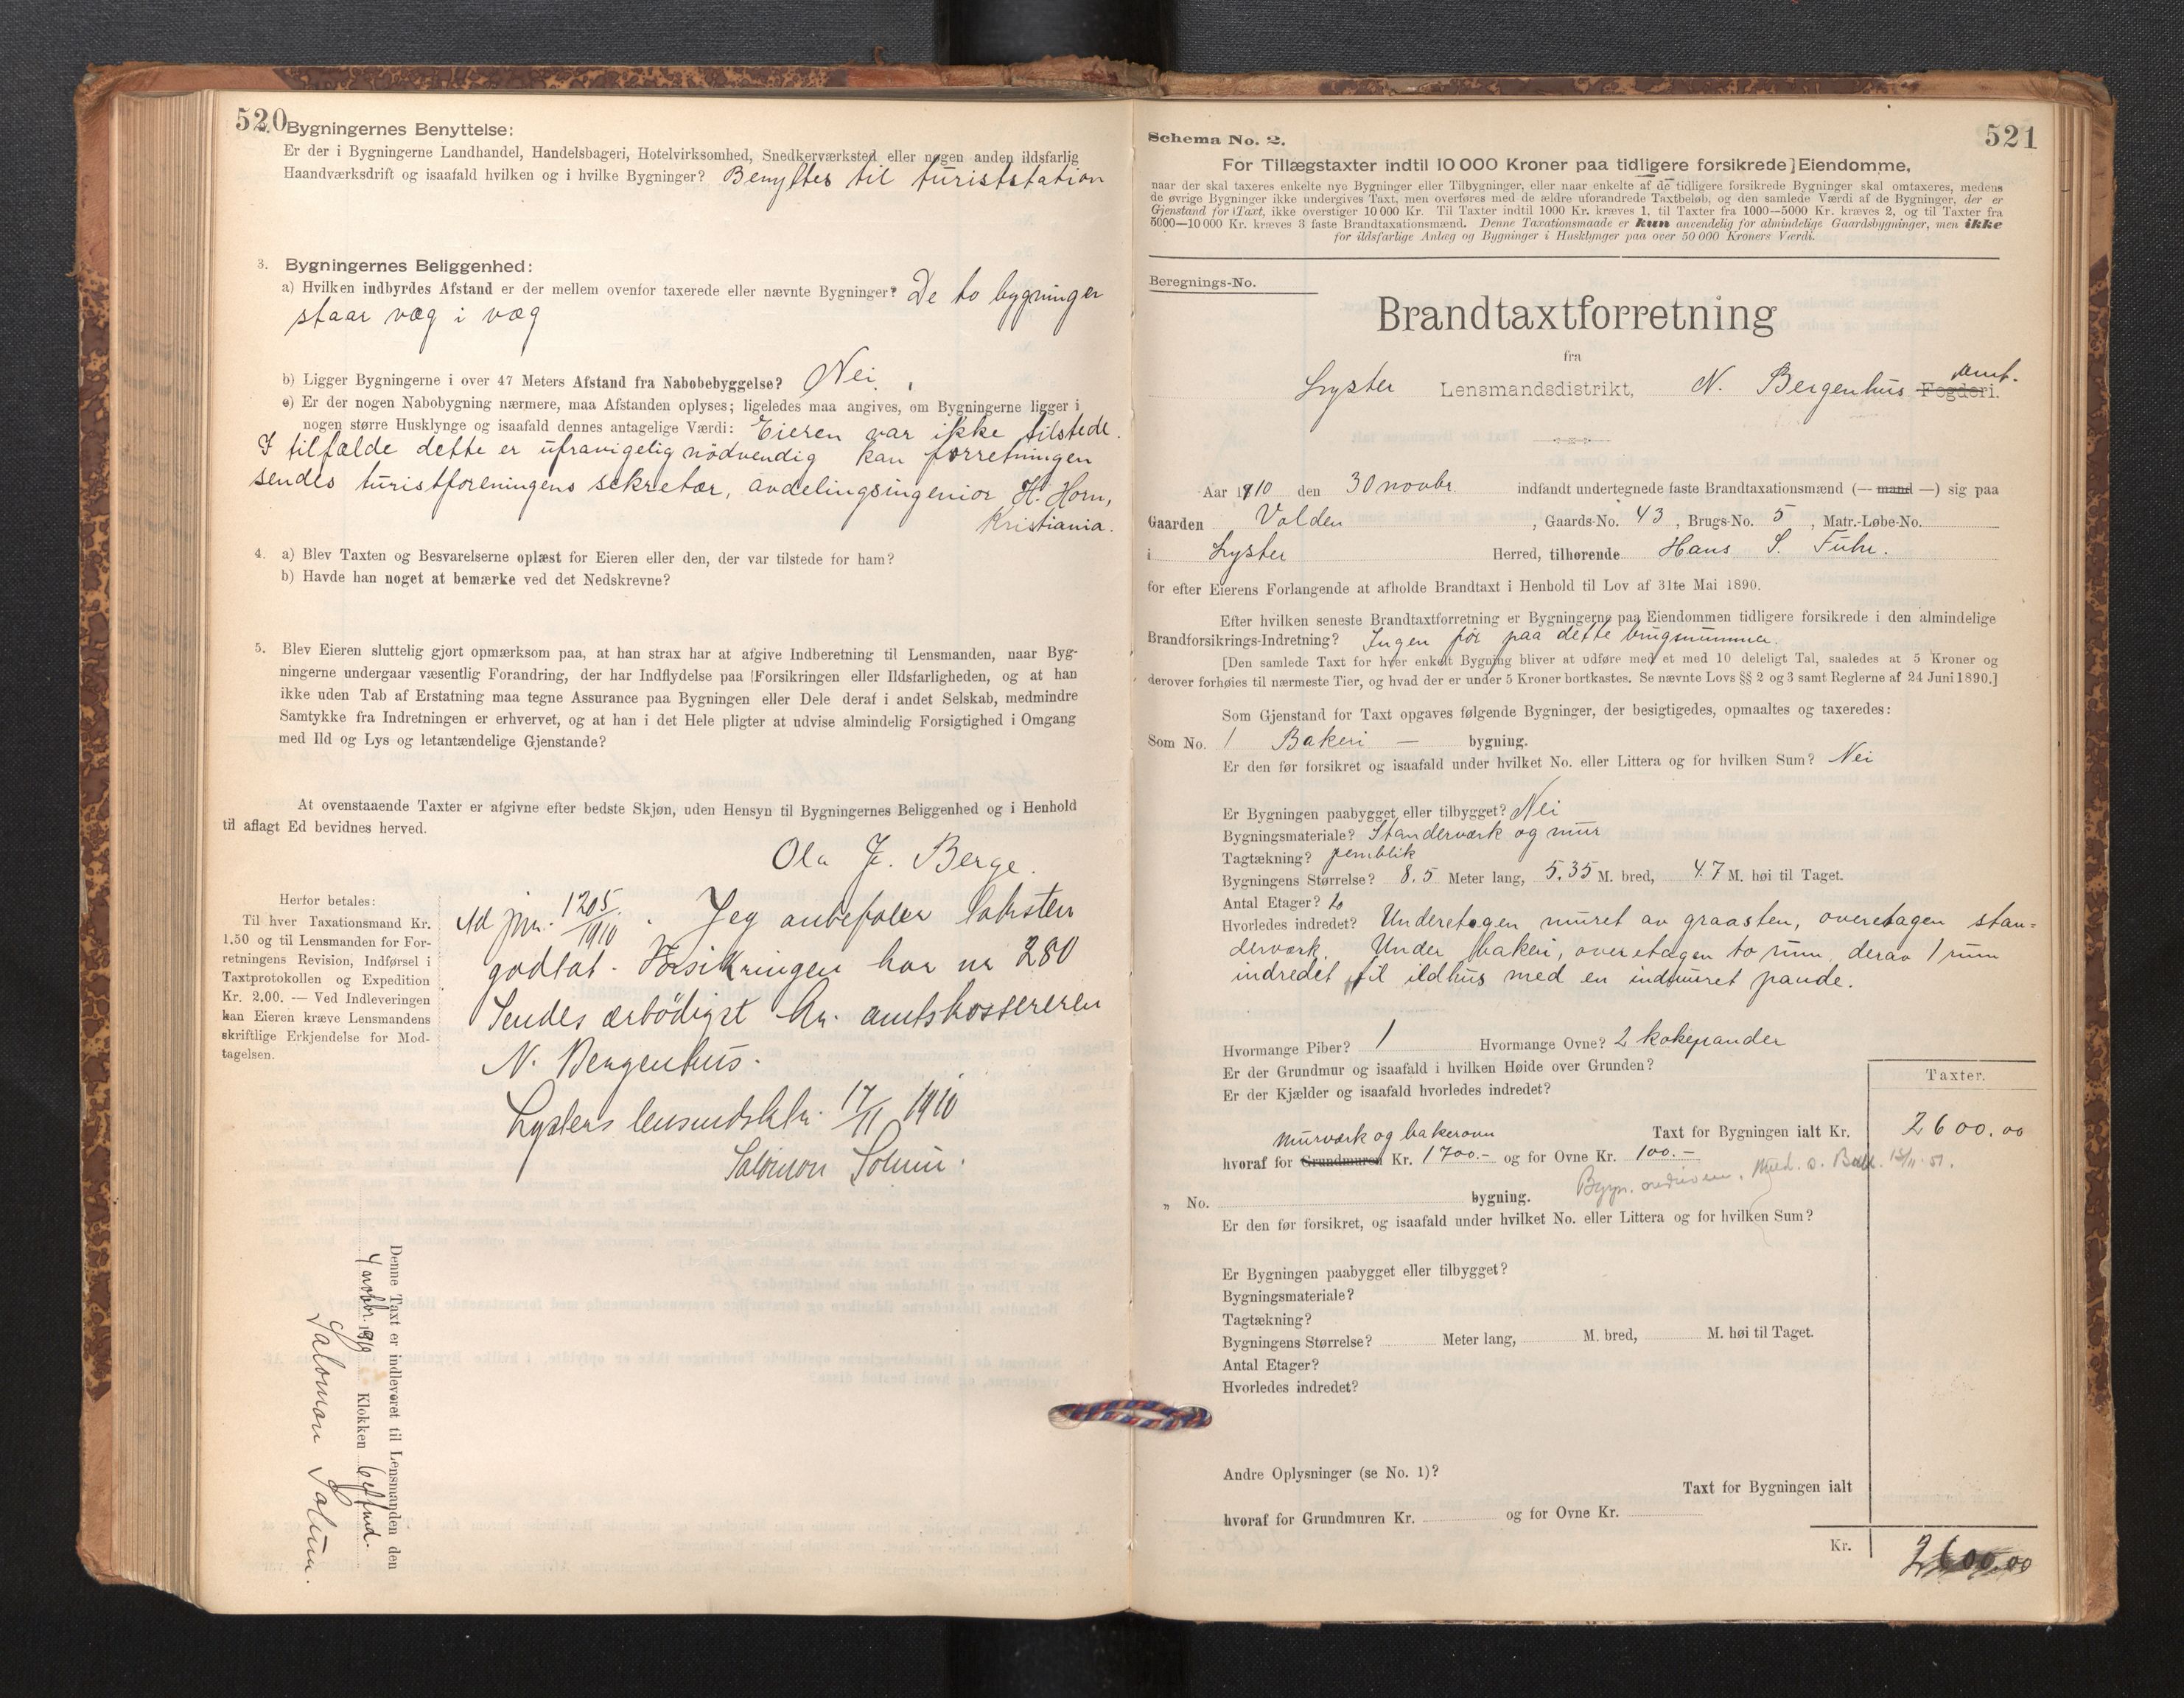 520
Bygningernes Benyttelse:
Er der i Bygningerne Landhandel, Handelsbageri, Hotelvirksomhed, Snedkerværksted eller nogen anden ildsfarlig
Haandværksdrift og isaafald hvilken og i hvilke Bygninger? Benyttes til turiststation
3. Bygningernes Beliggenhed:
a) Hvilken indbyrdes Afstand er der mellem ovenfor taxerede eller nævnte Bygninger? De to bygninger
staar væg i væg
b) Ligger Bygningerne i over 47 Meters Afstand fra Nabobebyggelse? Nei.
c) Er der nogen Nabobygning nærmere, maa Afstanden oplyses; ligeledes maa angives, om Bygningerne ligger i
nogen større Husklynge og isaafald dennes antagelige Værdi: Eieren var ikke tilstede.
I tilfælde dette er ufravigelig nödvendig kan forretningen
sendes turistforeningens sekretær, avdelingsingeniør H. Horn,
Kristiania.
4. a) Blev Taxten og Besvarelserne oplæst for Eieren eller den, der var tilstede for ham?
b) Havde han noget at bemærke ved det Nedskrevne?
5. Blev Eieren sluttelig gjort opmærksom paa, at han strax har at afgive Indberetning til Lensmanden, naar Byg-
ningerne undergaar væsentlig Forandring, der har Indflydelse paa Forsikringen eller Ildsfarligheden, og at han
ikke uden Tab af Erstatning maa tegne Assurance paa Bygningen eller Dele deraf i andet Selskab, medmindre
Samtykke fra Indretningen er erhvervet, og at han i det Hele pligter at udvise almindelig Forsigtighed i Omgang
med Ild og Lys og letantændelige Gjenstande?
At ovenstaaende Taxter er afgivne efter bedste Skjøn, uden Hensyn til Bygningernes Beliggenhed og i Henhold
til aflagt Ed bevidnes herved.
Ola J. Berge.
Herfor betales:
Til hver Taxationsmand Kr.
1.50 og til Lensmanden for For-
retningens Revision, Indførsel i
Taxtprotokollen og Expedition
Kr. 2.00. — Ved Indleveringen
kan Eieren kræve Lensmandens
skriftlige Erkjendelse for Mod-
tagelsen.
Ad jnr. 1205/1910. Jeg anbefaler taksten
godtat. Forsikringen har nr 280
Sendes ærbödigst hr. amtskassereren
N. Bergenhus.
Lysters lensmdsktr. 17/11 1910
Salomon Solum.
Denne Taxt er indleveret til Lensmanden den
4 novbr. 1910 Klokken 6 eftmd.
Salomon Solum.
521
Schema No. 2.
For Tillægstaxter indtil 10 000 Kroner paa tidligere forsikrede Eiendomme,
naar der skal taxeres enkelte nye Bygninger eller Tilbygninger, eller naar enkelte af de tidligere forsikrede Bygninger skal omtaxeres, medens
de øvrige Bygninger ikke undergives Taxt, men overføres med de ældre uforandrede Taxtbeløb, og den samlede Værdi af de Bygninger, der er
Gjenstand for Taxt, ikke overstiger 10 000 Kr. Til Taxter indtil 1000 Kr. kræves 1, til Taxter fra 1000—5000 Kr. kræves 2, og til Taxter fra
5000—10 000 Kr. kræves 3 faste Brandtaxationsmænd. Denne Taxationsmaade er kun anvendelig for almindelige Gaardsbygninger, men ikke
for ildsfarlige Anlæg og Bygninger i Husklynger paa over 50 000 Kroners Værdi.
Beregnings-No.
Brandtaxtforretning
fra
Lyster Lensmandsdistrikt, N. Bergenhus Fogderi. Amt.
Aar 1910 den 30 novbr. indfandt undertegnede faste Brandtaxationsmænd (— mand —) sig paa
Gaarden Volden, Gaards-No. 43, Brugs-No. 5, Matr.-Løbe-No.
i Lyster Herred, tilhørende Hans S. Fuhr.
for efter Eierens Forlangende at afholde Brandtaxt i Henhold til Lov af 31te Mai 1890.
Efter hvilken seneste Brandtaxtforretning er Bygningerne paa Eiendommen tidligere forsikrede i den almindelige
Brandforsikrings-Indretning? Ingen før paa dette brugsnummer.
[Den samlede Taxt for hver enkelt Bygning bliver at udføre med et med 10 deleligt Tal, saaledes at 5 Kroner og
derover forhøies til nærmeste Tier, og hvad der er under 5 Kroner bortkastes. Se nævnte Lovs §§ 2 og 3 samt Reglerne af 24 Juni 1890.]
Som Gjenstand for Taxt opgaves følgende Bygninger, der besigtigedes, opmaaltes og taxeredes:
Som No. 1 Bakeri — bygning.
Er den før forsikret og isaafald under hvilket No. eller Littera og for hvilken Sum? Nei
Er Bygningen paabygget eller tilbygget? Nei
Bygningsmateriale? Standerværk og mur
Tagtækning? jernblik
Bygningens Størrelse? 8.5 Meter lang, 5.35 M. bred, 4.7 M. høi til Taget.
Antal Etager? to
Hvorledes indredet? Underetagen muret av graasten, overetagen stan=
derværk. Under bakeri, overetagen to rum, derav 1 rum
indredet til ildhus med en indmuret pande.
Hvormange Piber? 1 Hvormange Ovne? 2 kokepander
Er der Grundmur og isaafald i hvilken Høide over Grunden?
Er der Kjælder og isaafald hvorledes indredet?
Taxter.
Taxt for Bygningen ialt Kr. 2600.00
murværk og bakerovn
hvoraf for Grundmuren Kr. 1700.- og for Ovne Kr. 100.-
Bygn. 15/11 51.
„ No. bygning.
Er den før forsikret, og isaafald under hvilket No. eller Littera og for hvilken Sum?
Er Bygningen paabygget eller tilbygget?
Bygningsmateriale?
Tagtækning?
Bygningens Størrelse? Meter lang, M. bred, M. høi til Taget.
Antal Etager?
Hvorledes indredet?
Andre Oplysninger (se No. 1)?
Taxt for Bygningen ialt
hvoraf for Grundmuren Kr. og for Ovne Kr.
Kr. 2600.00